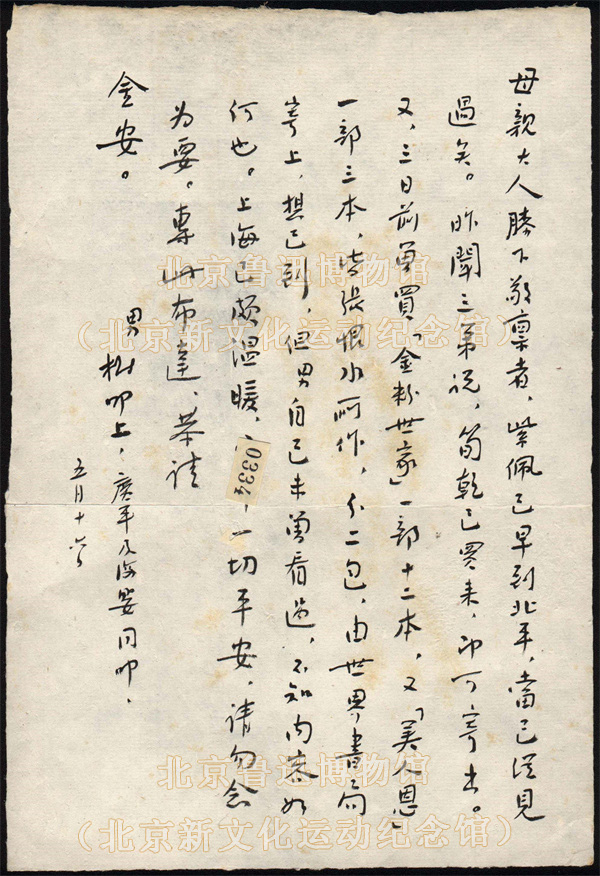 母親大人膝下敬禀者，紫佩已早到北平，當已經見
過矣。昨聞三弟説，筍乾已買来，即可寄出。
又，三日前曾買「金粉世家」一部十二本，又「美人恩」
一部三本，皆張恨水所作，分二包，由世界書局
寄上，想已到，但男自己未曾看過，不知内容如
何也。上海已頗温暖，
0334
一切平安，請勿念
为要。專此布達，恭請
金安。
男樹叩上，廣平及海嬰同叩，
五月十六日
北京鲁迅博物馆
（北京新文化运动纪念馆）
北京鲁迅博物馆
（北京新文化运动纪念馆）